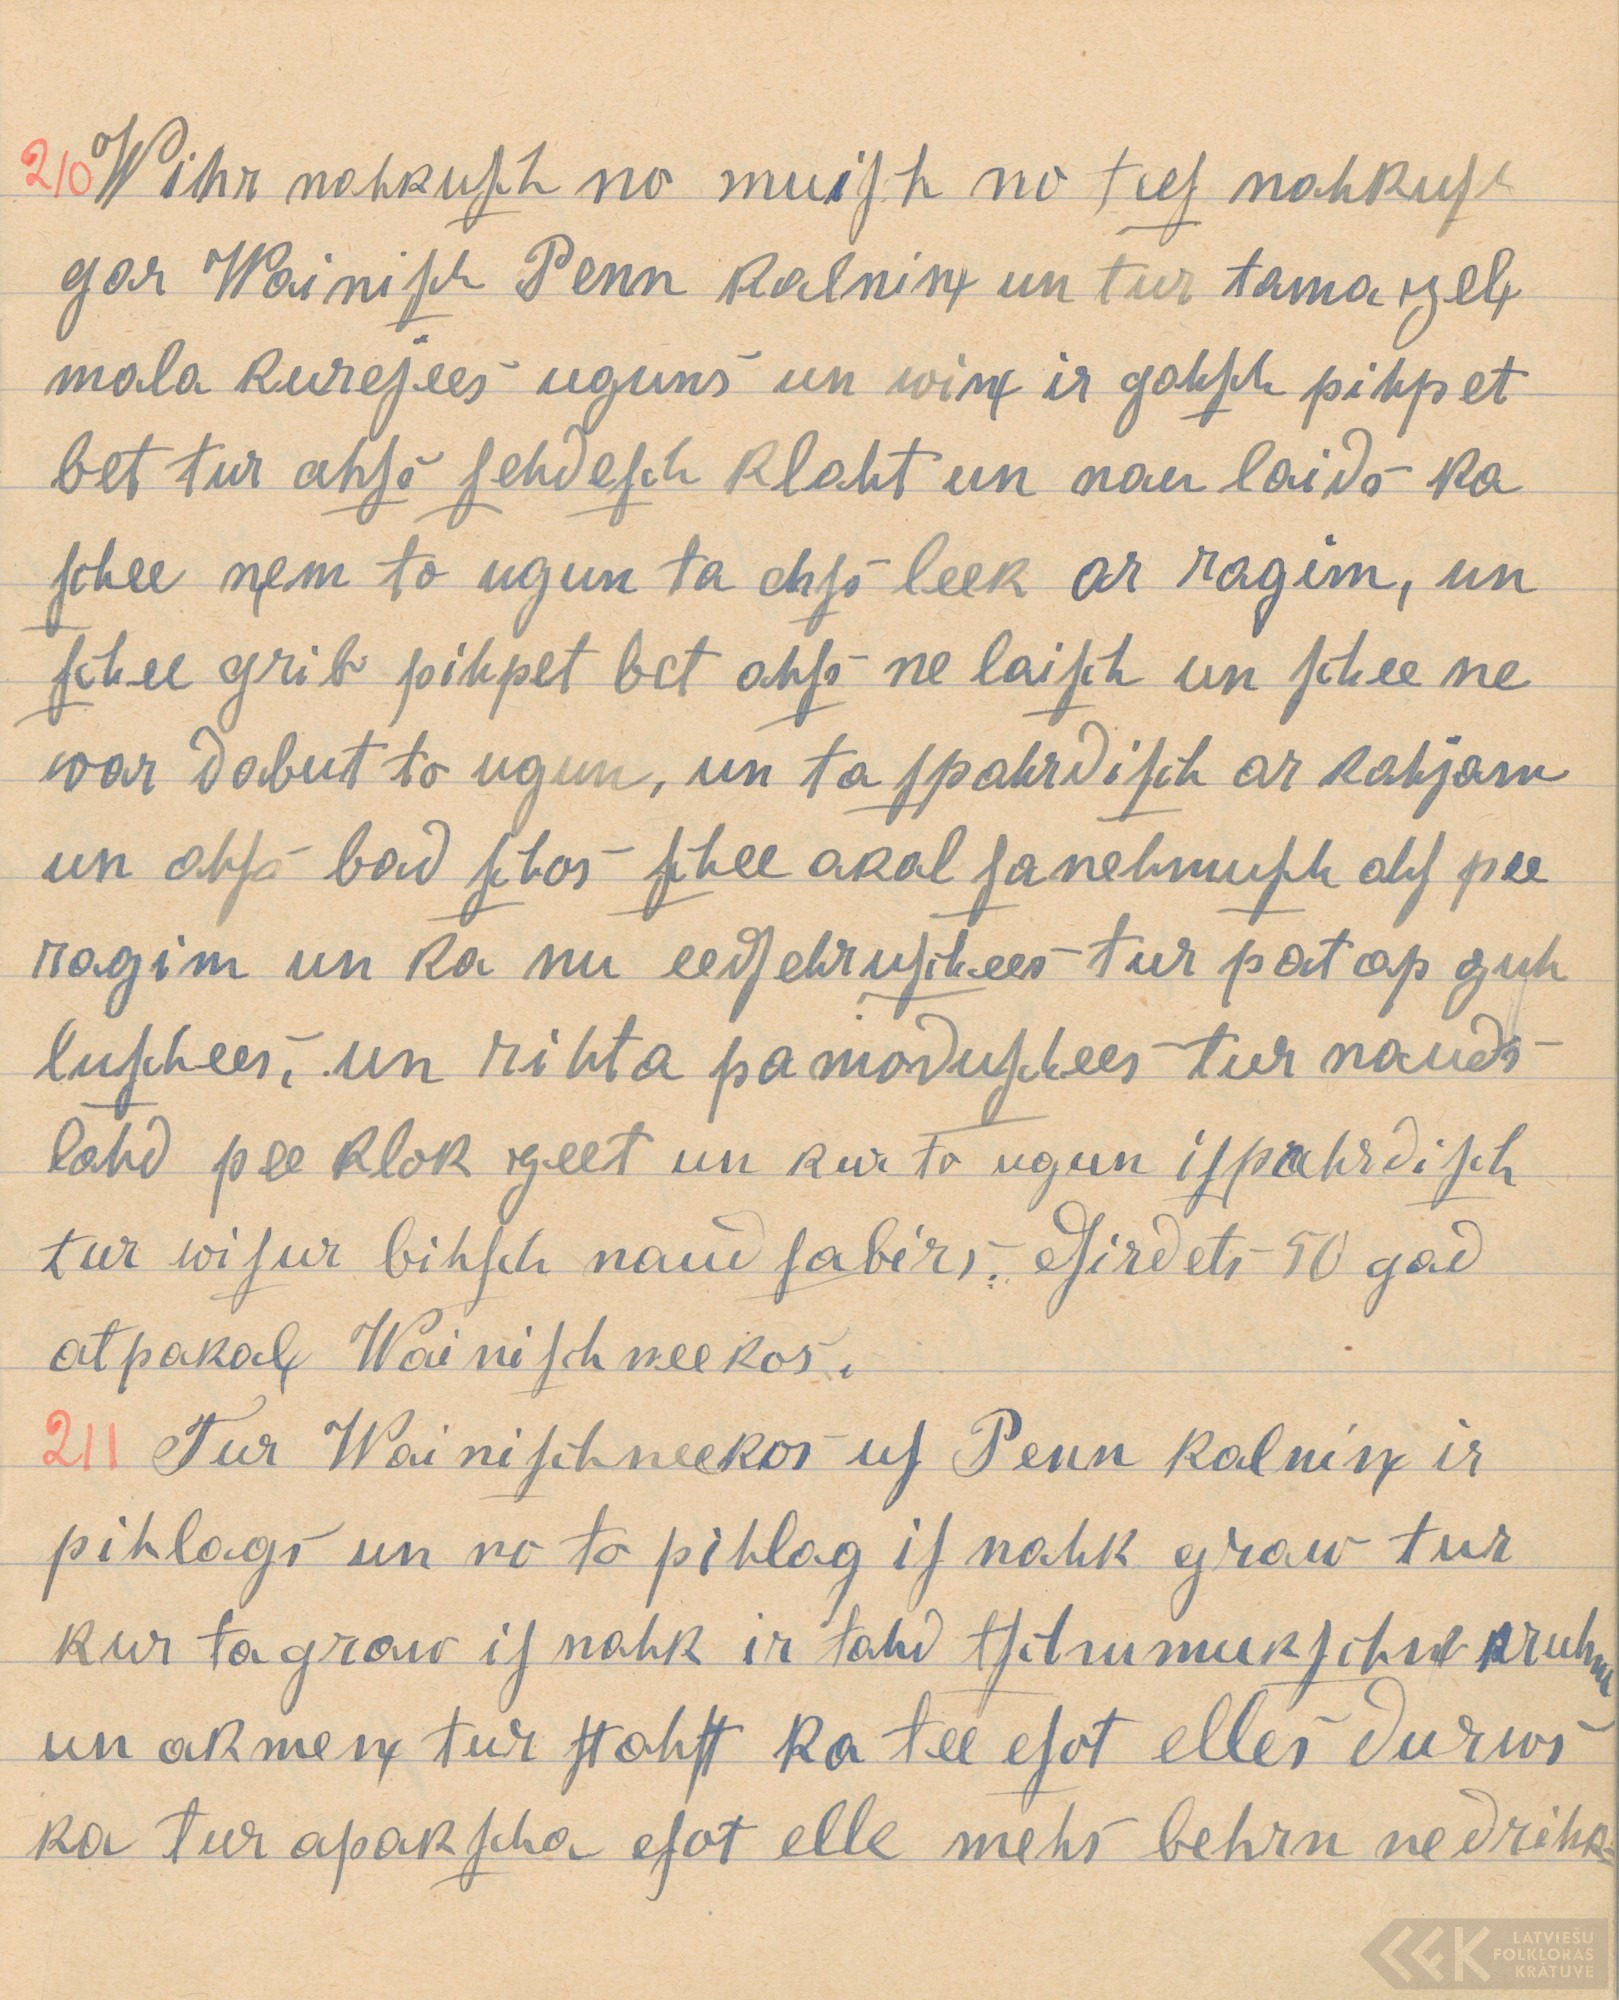 210 Wihr nahkuſch no muiſh no teeſ nahkuſch
gar Wainiſch Penn kalniņ un tur tama zeļ
mala kurejees uguns un wiņ ir gahſch pihpet
bet tur ahſs ſehdeſch klaht un nau laids ka
ſchee ņem to ugun ta ahſs leek ar ragim, un
ſchee grib pihpet bet ahſs ne laiſch un ſchee ne
war dabut to ugun, un ta ſpahrdiſch ar kahjam
un ahſs bad ſchos ſchee akal ſanehmuſch ahſ pee
ragim un ka nu eedſehruſchees tur pat ap guh
luſchees, un rihta pamoduſchees tur nauds
lahd pee klok zeet un kur to ugun iſpahrdiſch
tur wiſur bihſch naud ſabirs. Dſirdets 50 gad
atpakaļ Wainiſchneekos.
211 Tur Wainiſchneekos uſ Penn kalniņ ir
pihlags un no to pihlag iſ nahk graw tur
kur ta graw iſ nahk ir tahd tſchumukſchņ kruhm
un akmeņ tur ſtahſt ka tee eſot elles durws
ka tur apakſcha eſot elle mehs behrn nedrihk-
LATVIEŠU
FOLKLORAS
KRĀTUVE